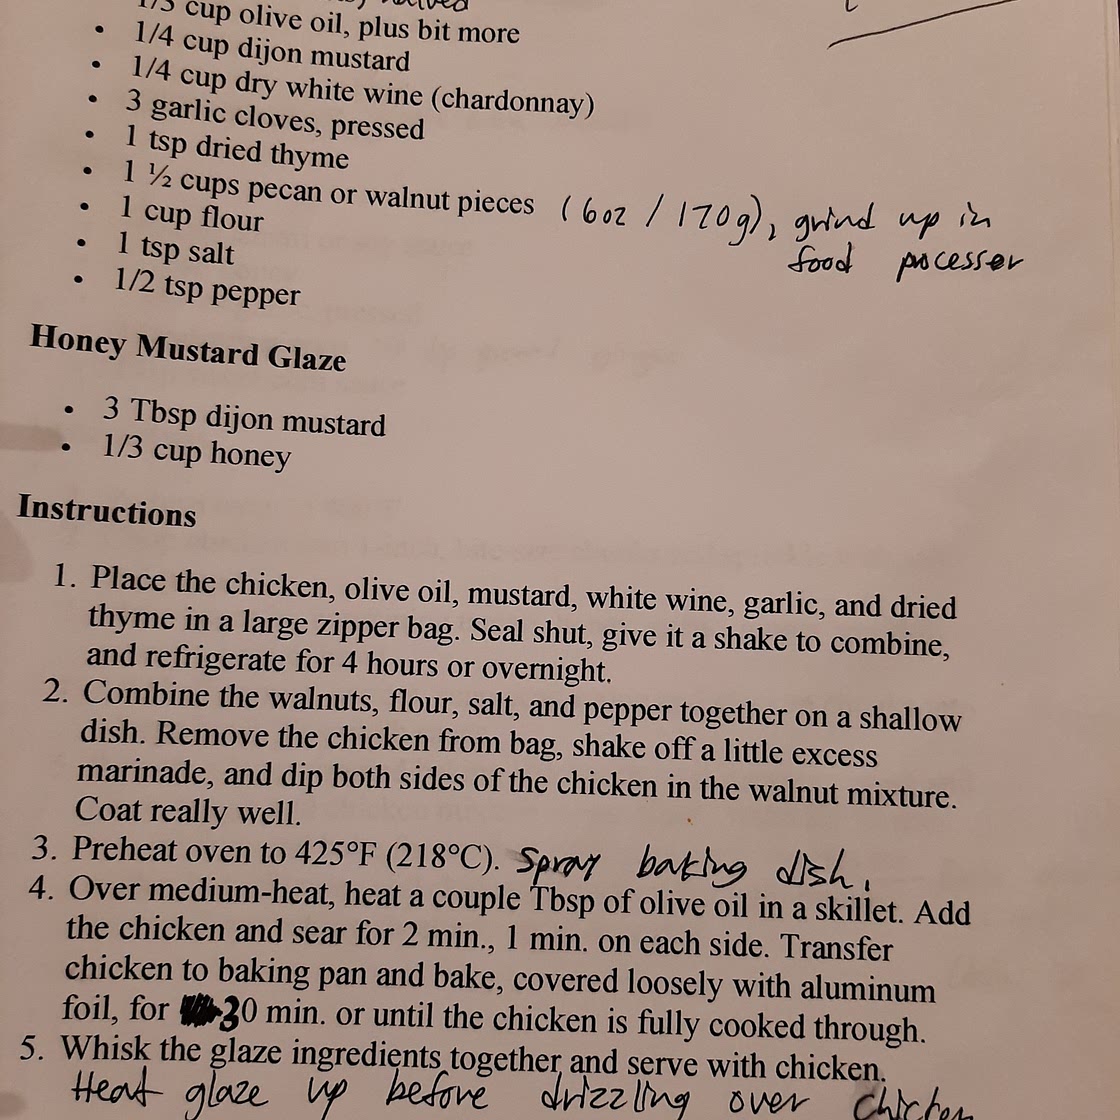 halved
1/3 cup olive oil, plus bit more
• 1/4 cup dijon mustard
• 1/4 cup dry white wine (chardonnay)
• 3 garlic cloves, pressed
• 1 tsp dried thyme
• 1 ½ cups pecan or walnut pieces (6oz / 170g), grind up in
food pocesser
• 1 cup flour
• 1 tsp salt
• 1/2 tsp pepper
Honey Mustard Glaze
• 3 Tbsp dijon mustard
• 1/3 cup honey
Instructions
1. Place the chicken, olive oil, mustard, white wine, garlic, and dried
thyme in a large zipper bag. Seal shut, give it a shake to combine,
and refrigerate for 4 hours or overnight.
2. Combine the walnuts, flour, salt, and pepper together on a shallow
dish. Remove the chicken from bag, shake off a little excess
marinade, and dip both sides of the chicken in the walnut mixture.
Coat really well.
3. Preheat oven to 425°F (218°C). Spray baking dish.
4. Over medium-heat, heat a couple Tbsp of olive oil in a skillet. Add
the chicken and sear for 2 min., 1 min. on each side. Transfer
chicken to baking pan and bake, covered loosely with aluminum
foil, for 30 min. or until the chicken is fully cooked through.
5. Whisk the glaze ingredients together and serve with chicken.
Heat glaze up before drizzling over chicken